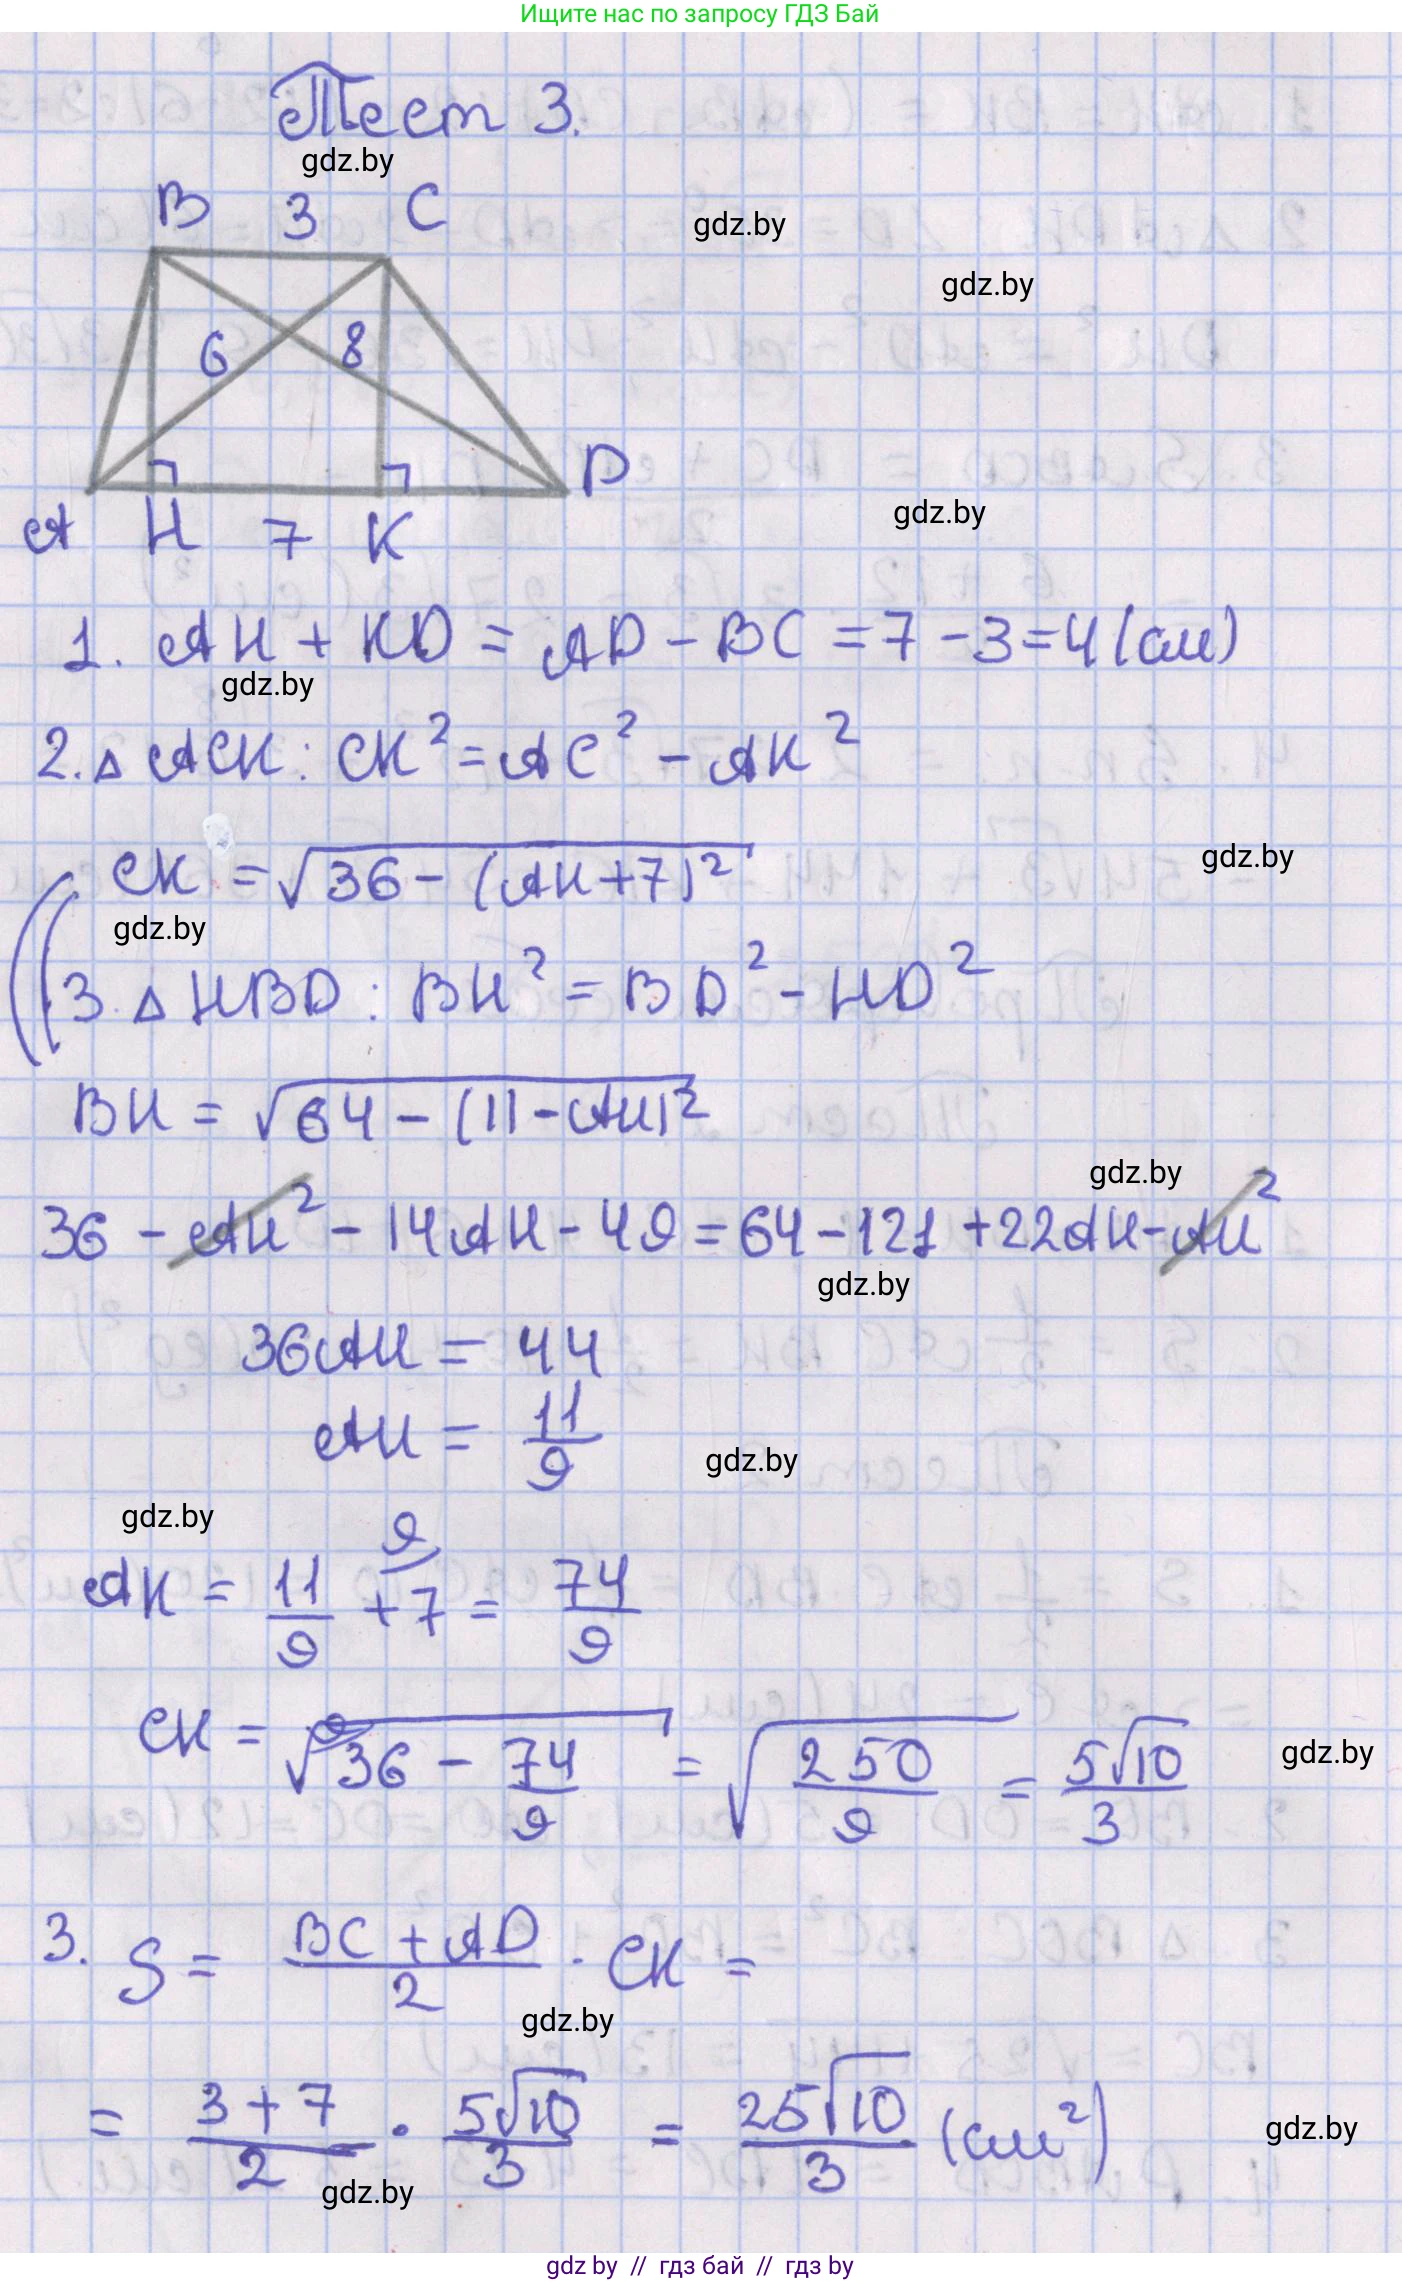 Ищите нас по запросу ГДЗ Бай
Тест 3.
gdz.by
B 3 C
gdz.by
gdz.by
6 8
D
A H 7 K
gdz.by
1. AH + KD = AD - BC = 7 - 3 = 4 (см)
gdz.by
2. △ ACK : CK² = AC² - AK²
CK = √36 - (AH + 7)²
gdz.by
gdz.by
3. △ HBD : BH² = BD² - HD²
BH = √64 - (11 - AH)²
gdz.by
36 - AH² - 14AH - 49 = 64 - 121 + 22AH - AH²
gdz.by
36AH = 44
AH = 11/9
gdz.by
gdz.by
AK = 11/9 + 7 9 = 74/9
CK = √36 9 - 74/9 = √250/9 = 5√10/3
gdz.by
3. S = BC + AD/2 · CK =
gdz.by
= 3 + 7/2 · 5√10/3 = 25√10/3 (см²)
gdz.by
gdz.by
gdz by // гдз бай // гдз by